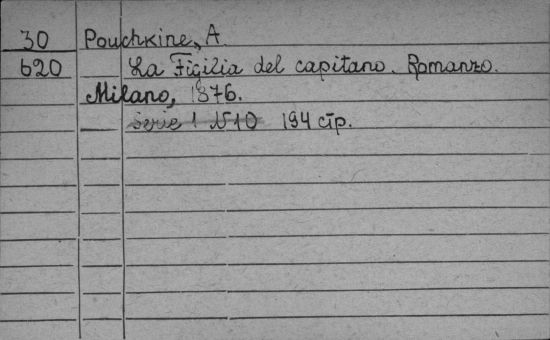 30 Pouchkine, A.
620 La Figilia del capitano. Romanzo.
Milano, 1876.
Serie 1 N10 194 стр.